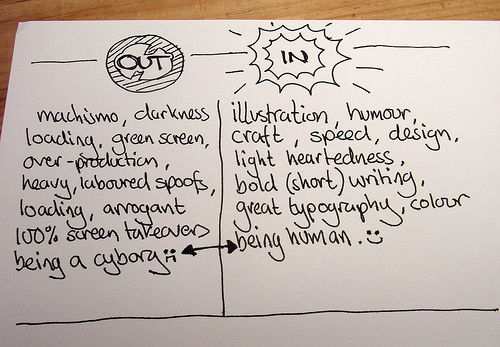 OUT
machismo, darkness
loading, green screen,
over-production,
heavy, laboured spoofs,
loading, arrogant
100% screen takeovers
being a cyborg
IN
illustration, humour,
craft, speed, design,
light heartedness,
bold (short) writing,
great typography, colour
being human.